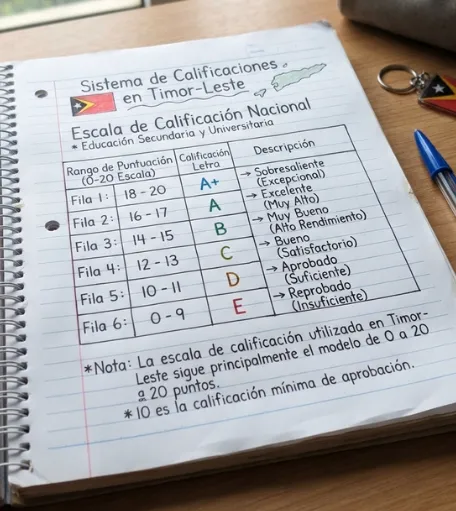 Sistema de Calificaciones
en Timor-Leste
Escala de Calificación Nacional
* Educación Secundaria y Universitaria
Rango de Puntuación (0-20 Escala) Calificación Letra Descripción
Fila 1: 18 - 20 A+ → Sobresaliente (Excepcional)
Fila 2: 16 - 17 A → Excelente (Muy Alto)
Fila 3: 14 - 15 B → Muy Bueno (Alto Rendimiento)
Fila 4: 12 - 13 C → Bueno (Satisfactorio)
Fila 5: 10 - 11 D → Aprobado (Suficiente)
Fila 6: 0 - 9 E → Reprobado (Insuficiente)
*Nota: La escala de calificación utilizada en Timor-
Leste sigue principalmente el modelo de 0 a 20
a 20 puntos.
* 10 es la calificación mínima de aprobación.